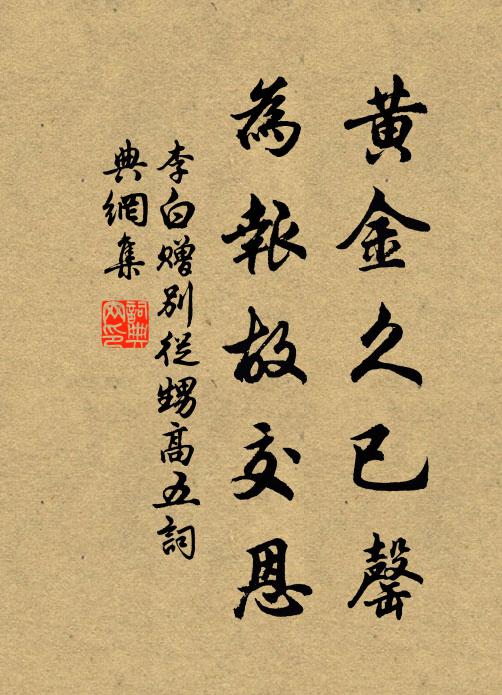 黃金久已罄
為報故交恩
李白贈別從甥高五詞
典網集
詞典網印